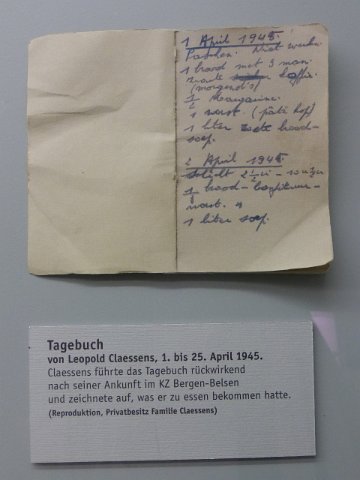 1 April 1945.
Paschen. Niet werken
1 brood met 3 man.
zwarte koffie.
(morgend's)
½ Margarine.
1 worst. (paté lef)
1 liter rood-
soep.
2 April 1945
2½ u -
½ brood -
worst.
1 liter soep.
Tagebuch
von Leopold Claessens, 1. bis 25. April 1945.
Claessens führte das Tagebuch rückwirkend
nach seiner Ankunft im KZ Bergen-Belsen
und zeichnete auf, was er zu essen bekommen hatte.
(Reproduktion, Privatbesitz Familie Claessens)